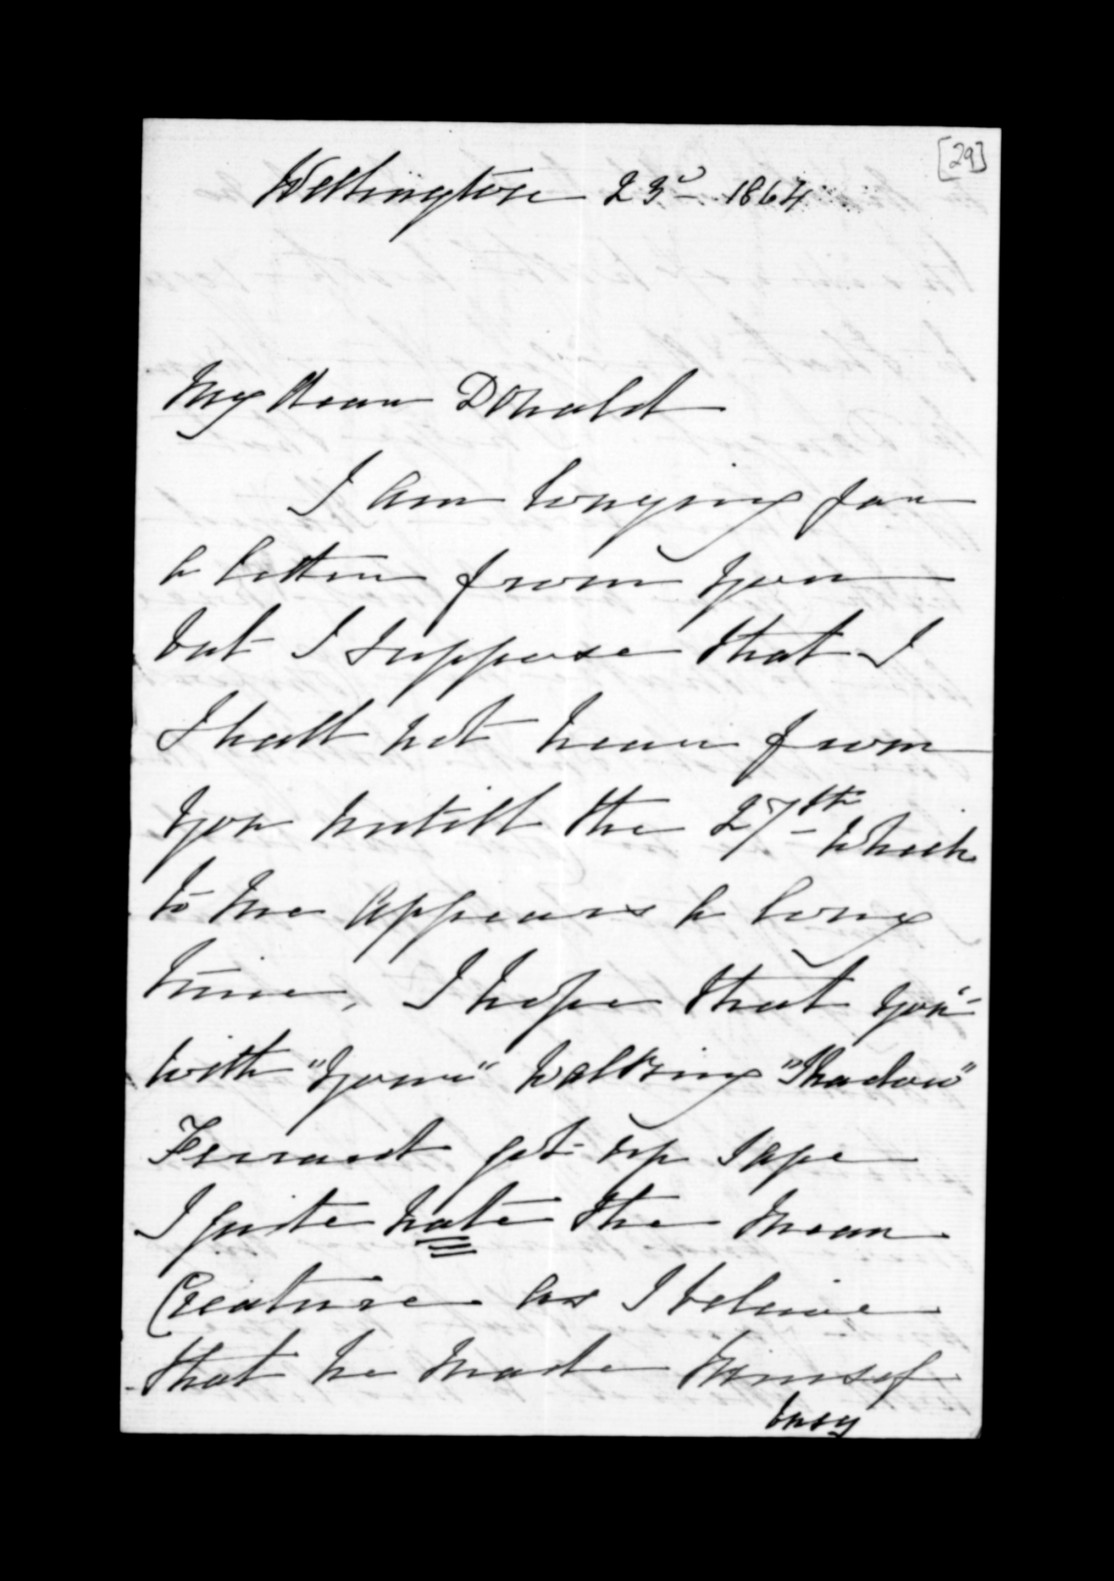 [29]
Wellington 23d 1864
My dear Donald
I am longing for
a letter from you
but I suppose that I
shall not hear from
you untill the 27th which
to me appears a long
time, I hope that you
with "your" walking "Shadow"
got up safe
I quite hate the mean
Creature as I beleive
that he made himself
busy